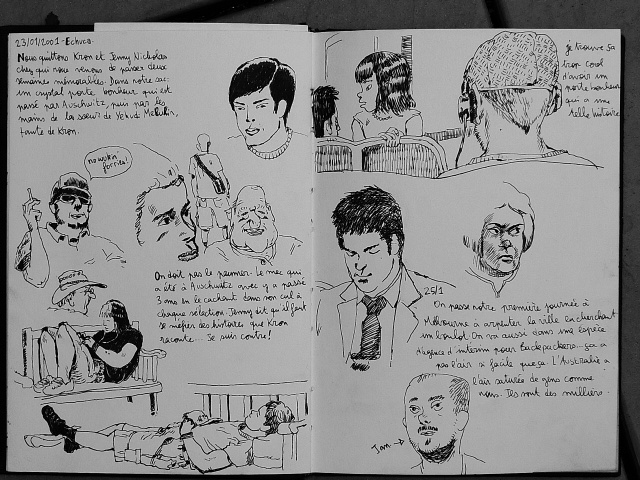 23/01/2001 - Echuca.
Nous quittons Kron et Jenny Nicholas
chez qui nous venons de passer deux
semaines mémorables. Dans notre sac:
un crystal porte bonheur qui est
passé par Auschwitz, puis par les
mains de la sœur de Yehudi Menuhin,
tante de Kron.
no worries!
On doit pas le paumer. Le mec qui
a été à Auschwitz avec y a passé
3 ans en le cachant dans son cul à
chaque sélection. Jenny dit qu'il faut
se méfier des histoires que Kron
raconte... Je suis contre!
Je trouve ça
trop cool
d'avoir un
porte bonheur
qui a une
telle histoire
25/1
On passe notre première journée à
Melbourne à arpenter la ville en cherchant
un boulot. On va aussi dans une espèce
d'agence d'interim pour Backpackers... ça a
pas l'air si facile que ça. L'Australie a
l'air saturée de gens comme
nous. Ils sont des milliers.